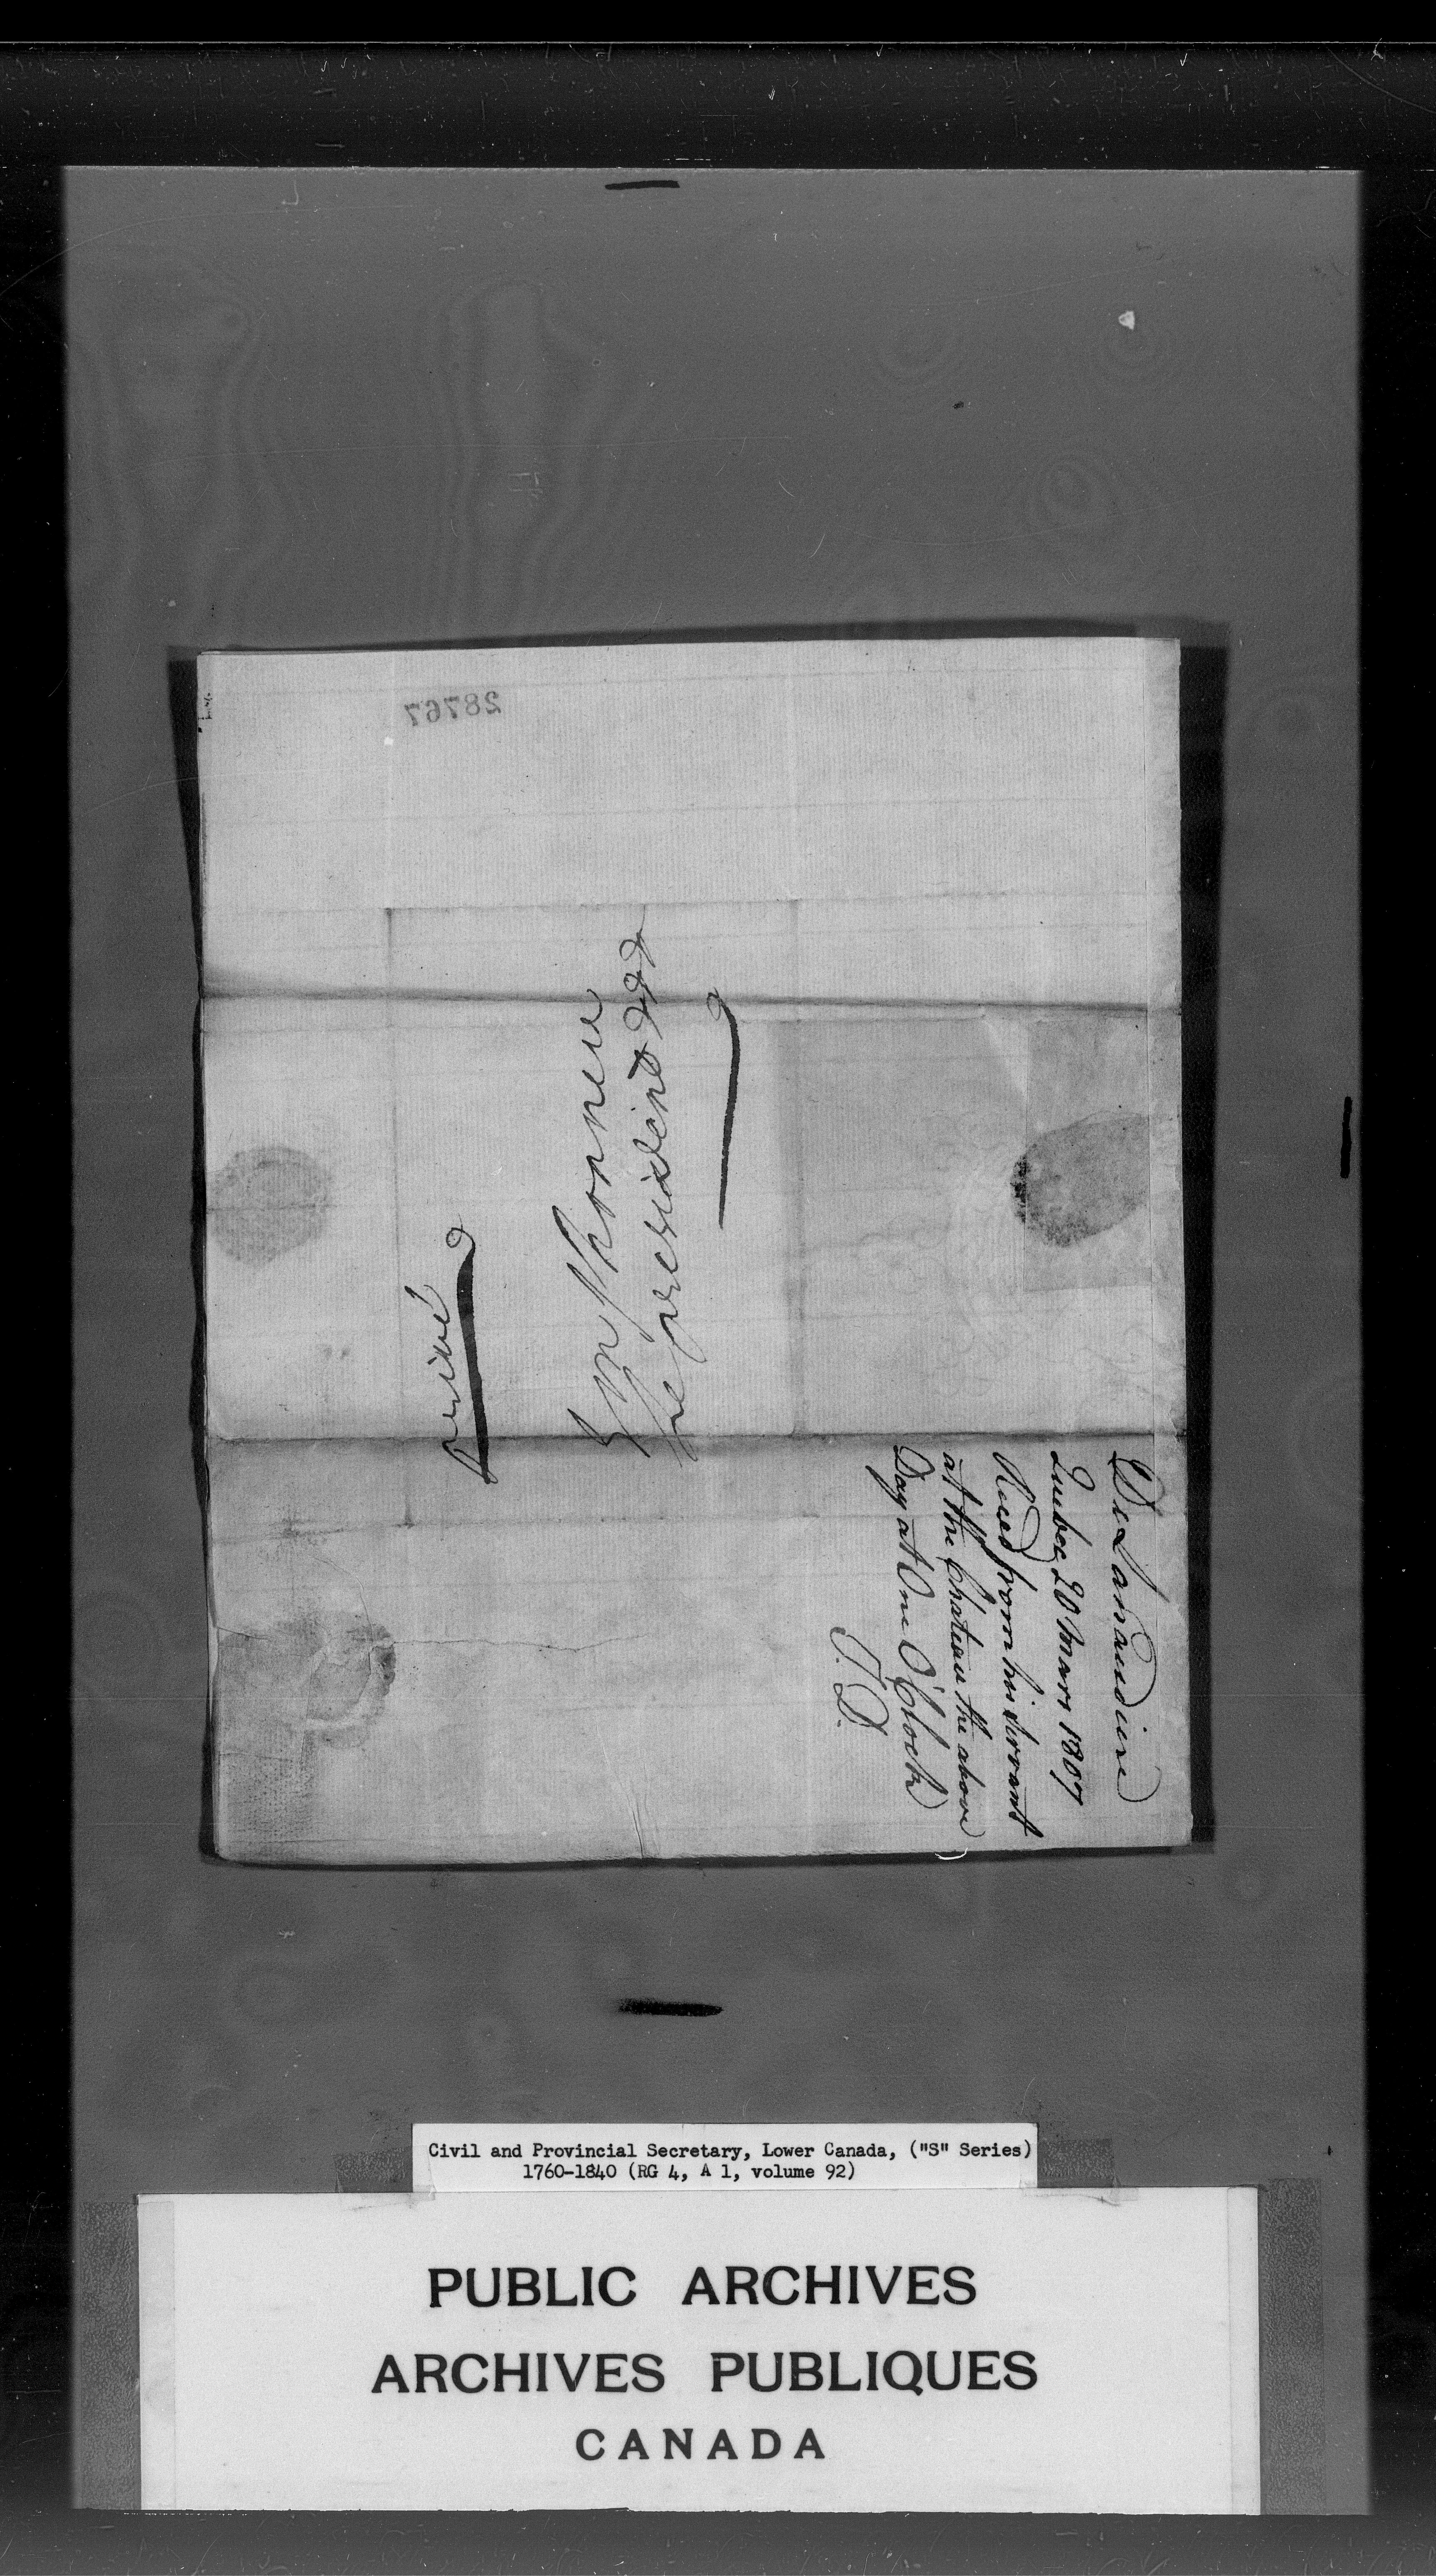 28767
privé
Son honneur
Le president &&&
De Lanaudiere
Quebec 20 Mars 1807
Recd from his Servant
at the Chateau the above
Day at One O'Clock
T. D.
Civil and Provincial Secretary, Lower Canada, ("S" Series)
1760-1840 (RG 4, A 1, volume 92)
PUBLIC ARCHIVES
ARCHIVES PUBLIQUES
CANADA